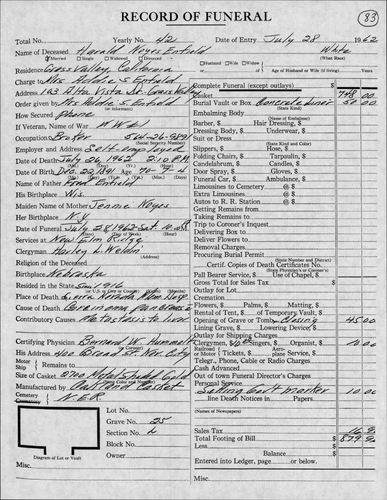 83
RECORD OF FUNERAL
Total No. Yearly No. 42 Date of Entry July 28 1962
Name of Deceased Harold Noyes Enfield White
Married Single Widowed Divorced Husband Wife Widow (What Race)
Residence Grass Valley, California
or Age of Husband or Wife (if living) Years
Charge to Mrs Addie S Enfield
Address 123 Alta Vista St. Grass Valley
Order given by Mrs Addie S. Enfield
(or informant)
How Secured phone
If Veteran, Name of War WWI
Occupation 566-26-9891
(Social Security No.)
Employer and Address Self-employed
Date of Death July 26 1962 2:10 P.M.
(Mo.) (Day) (Yr.) (Hour)
Date of Birth Dec. 22 1891 Age 70-7-4
Name of Father Enfield
His Birthplace Wis.
Maiden Name of Mother Jennie Noyes
Her Birthplace N.Y.
Date of Funeral July 28 1962 Sat. 10 AM
(Date) (Day of Week) (Hour)
Services at New Elm Ridge
Clergyman Harley L.
(Address)
Religion of the Deceased
Birthplace Nebraska
Resided in the State Since 1916
Place of Death Sierra Nevada Mem Hosp
Cause of Death Carcinoma pancreas
Contributory Causes Metastasis to liver
Certifying Physician Bernard W. Hummelt
His Address 400 Broad St. Nev. City
Motor
Ship Remains to
Size of Casket. 2700 Gold
(State Color and Number)
Manufactured by Oakland Casket
Cemetery
Crematory N.E.R.
Lot No.
Grave No. 25
Section No. L
Block No.
Owner
Diagram of Lot or Vault
Misc.
Complete Funeral (except outlays) $
Casket 748 00
Burial Vault or Box Concrete Liner 50 00
(State Kind)
Embalming Body
(Name of Embalmer)
Barber, $ Hair Dressing, $
Dressing Body, $ Underwear, $
Suit or Dress
(State Kind and Color)
Slippers, $ Hose, $
Folding Chairs, $ Tarpaulin, $
Candelabrum, $ Candles, $
Door Spray, $ Gloves, $
Funeral Car, $ Ambulance, $
Limousines to Cemetery @ $
Extra Limousines @ $
Autos to R. R. Station @ $
Getting Remains from
Taking Remains to
Trip to Coroner's Inquest
Delivering Box to
Deliver Flowers to
Removal Charges
Procuring Burial Permit
(State Number and District)
Certif. Copies of Death Certificates No.
(State Physician's or Coroner's)
Pall Bearer Service, $ Use of Chapel, $
Gross Total for Sales Tax $
Outlay for Lot
Cremation
Flowers, $ Palms, $ Matting, $
Rental of Tent, $ of Temporary Vault, $
Opening of Grave or Tomb Closing 45 00
Lining Grave, $ Lowering Device, $
Outlay for Shipping Charges
Clergymen, $ Singers, $ Organist, $ 10 00
Railroad
or Motor Tickets, $ Aero-plane Service, $ Hotel, $
Telegr., Phone, Cable or Radio Charges
Cash Advanced
Out of town Funeral Director's Charges
Personal Service
Setting Gov't Marker 10 00
line Death Notices in Papers
(Names of Newspapers)
Sales Tax
Total Footing of Bill $
Less
Balance $
Entered into Ledger, page or below.
Misc.